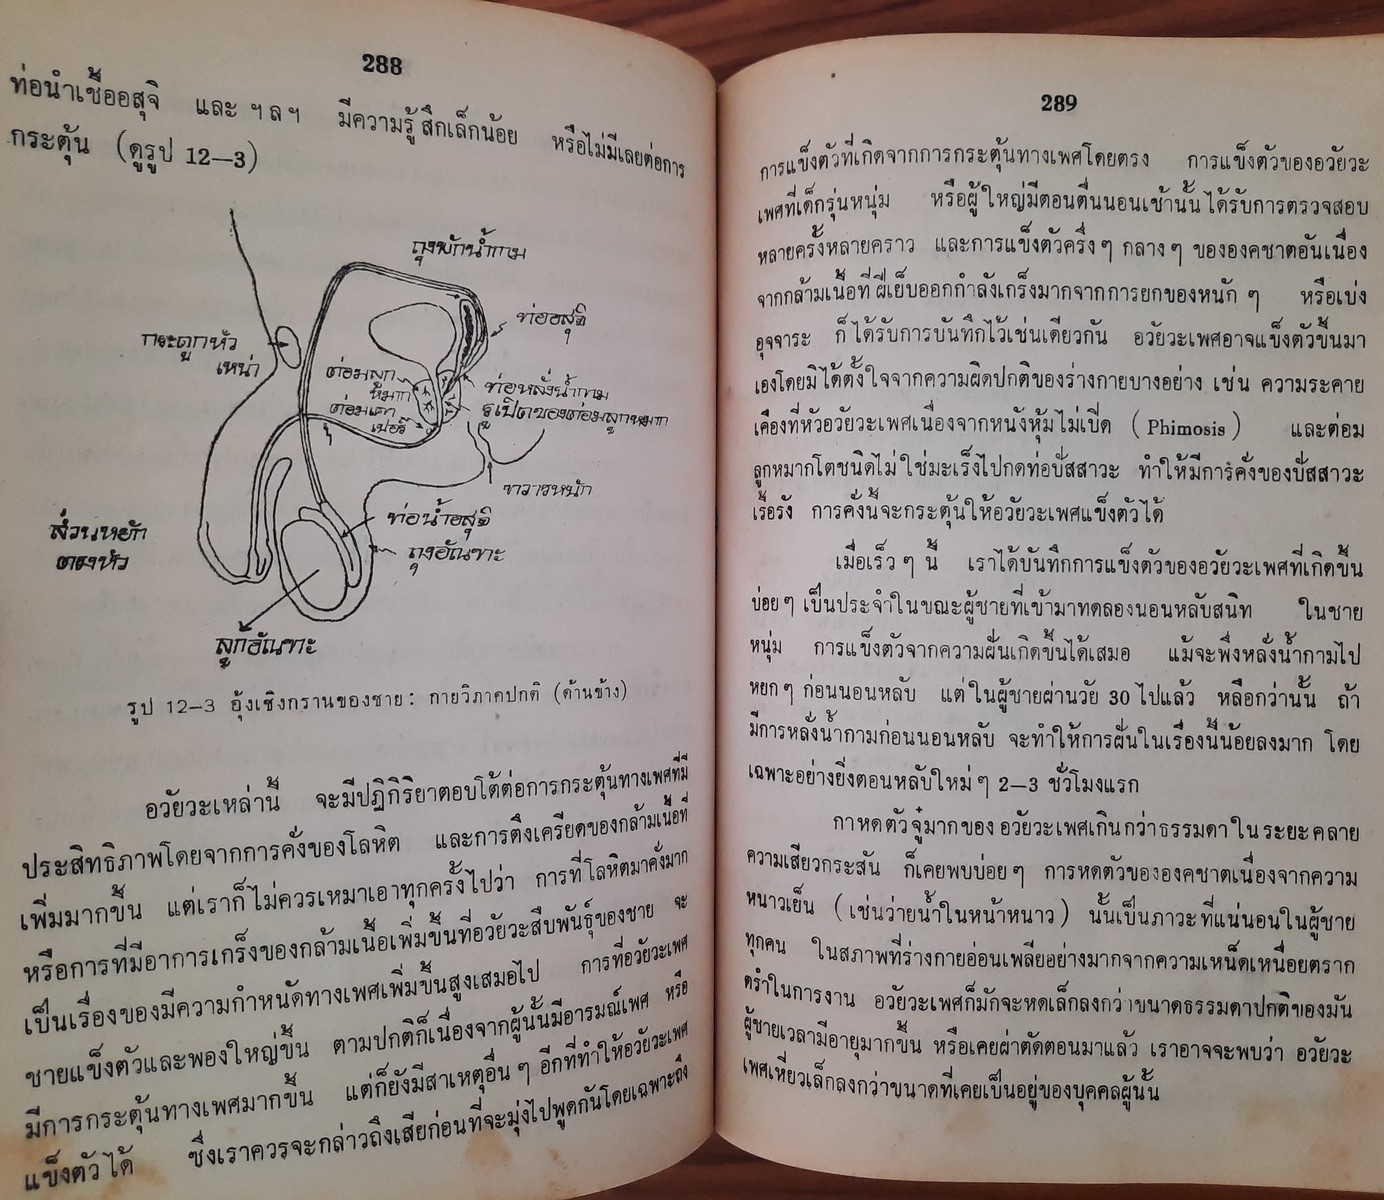 288
ท่อนำเชื้ออสุจิ และ ฯลฯ มีความรู้สึกเล็กน้อย หรือไม่มีเลยต่อการ
กระตุ้น (ดูรูป 12—3)
ถุงพักน้ำกาม
ท่ออสุจิ
กระดูกหัว
เหน่า
ต่อมลูก
หมาก
ต่อมเคา
เปอร์
ท่อหลั่งน้ำกาม
รูเปิดของต่อมลูกหมาก
ทวารหนัก
ท่อน้ำอสุจิ
ถุงอัณฑะ
ส่วนหยัก
ตรงหัว
ลูกอัณฑะ
รูป 12—3 อุ้งเชิงกรานของชาย: กายวิภาคปกติ (ด้านข้าง)
อวัยวะเหล่านี้ จะมีปฏิกิริยาตอบโต้ต่อการกระตุ้นทางเพศที่มี
ประสิทธิภาพโดยจากการคั่งของโลหิต และการตึงเครียดของกล้ามเนื้อที่
เพิ่มมากขึ้น แต่เราก็ไม่ควรเหมาเอาทุกครั้งไปว่า การที่โลหิตมาคั่งมาก
หรือการที่มีอาการเกร็งของกล้ามเนื้อเพิ่มขึ้นที่อวัยวะสืบพันธุ์ของชาย จะ
เป็นเรื่องของมีความกำหนัดทางเพศเพิ่มขึ้นสูงเสมอไป การที่อวัยวะเพศ
ชายแข็งตัวและพองใหญ่ขึ้น ตามปกติก็เนื่องจากผู้นั้นมีอารมณ์เพศ หรือ
มีการกระตุ้นทางเพศมากขึ้น แต่ก็ยังมีสาเหตุอื่นๆ อีกที่ทำให้อวัยวะเพศ
แข็งตัวได้ ซึ่งเราควรจะกล่าวถึงเสียก่อนที่จะมุ่งไปพูดกันโดยเฉพาะถึง
289
การแข็งตัวที่เกิดจากการกระตุ้นทางเพศโดยตรง การแข็งตัวของอวัยวะ
เพศที่เด็กรุ่นหนุ่ม หรือผู้ใหญ่มีตอนตื่นนอนเช้านั้นได้รับการตรวจสอบ
หลายครั้งหลายคราว และการแข็งตัวครึ่งๆ กลางๆ ขององคชาตอันเนื่อง
จากกล้ามเนื้อที่ฝีเย็บออกกำลังเกร็งมากจากการยกของหนักๆ หรือเบ่ง
อุจจาระ ก็ได้รับการบันทึกไว้เช่นเดียวกัน อวัยวะเพศอาจแข็งตัวขึ้นมา
เองโดยมิได้ตั้งใจจากความผิดปกติของร่างกายบางอย่าง เช่น ความระคาย
เคืองที่หัวอวัยวะเพศเนื่องจากหนังหุ้มไม่เปิด (Phimosis) และต่อม
ลูกหมากโตชนิดไม่ใช่มะเร็งไปกดท่อปัสสาวะ ทำให้มีการคั่งของปัสสาวะ
เรื้อรัง การคั่งนี้จะกระตุ้นให้อวัยวะเพศแข็งตัวได้
เมื่อเร็วๆ นี้ เราได้บันทึกการแข็งตัวของอวัยวะเพศที่เกิดขึ้น
บ่อยๆ เป็นประจำในขณะผู้ชายที่เข้ามาทดลองนอนหลับสนิท ในชาย
หนุ่ม การแข็งตัวจากความฝันเกิดขึ้นได้เสมอ แม้จะพึ่งหลั่งน้ำกามไป
หยกๆ ก่อนนอนหลับ แต่ในผู้ชายผ่านวัย 30 ไปแล้ว หลือกว่านั้น ถ้า
มีการหลั่งน้ำกามก่อนนอนหลับ จะทำให้การฝันในเรื่องนี้น้อยลงมาก โดย
เฉพาะอย่างยิ่งตอนหลับใหม่ๆ 2—3 ชั่วโมงแรก
กาหดตัวจู๋มากของอวัยวะเพศเกินกว่าธรรมดาในระยะคลาย
ความเสียวกระสัน ก็เคยพบบ่อยๆ การหดตัวขององคชาตเนื่องจากความ
หนาวเย็น (เช่นว่ายน้ำในหน้าหนาว) นั้นเป็นภาวะที่แน่นอนในผู้ชาย
ทุกคน ในสภาพที่ร่างกายอ่อนเพลียอย่างมากจากความเหน็ดเหนื่อยตราก
ตรำในการงาน อวัยวะเพศก็มักจะหดเล็กลงกว่าขนาดธรรมดาปกติของมัน
ผู้ชายเวลามีอายุมากขึ้น หรือเคยผ่าตัดตอนมาแล้ว เราอาจจะพบว่า อวัยวะ
เพศเหี่ยวเล็กลงกว่าขนาดที่เคยเป็นอยู่ของบุคคลผู้นั้น